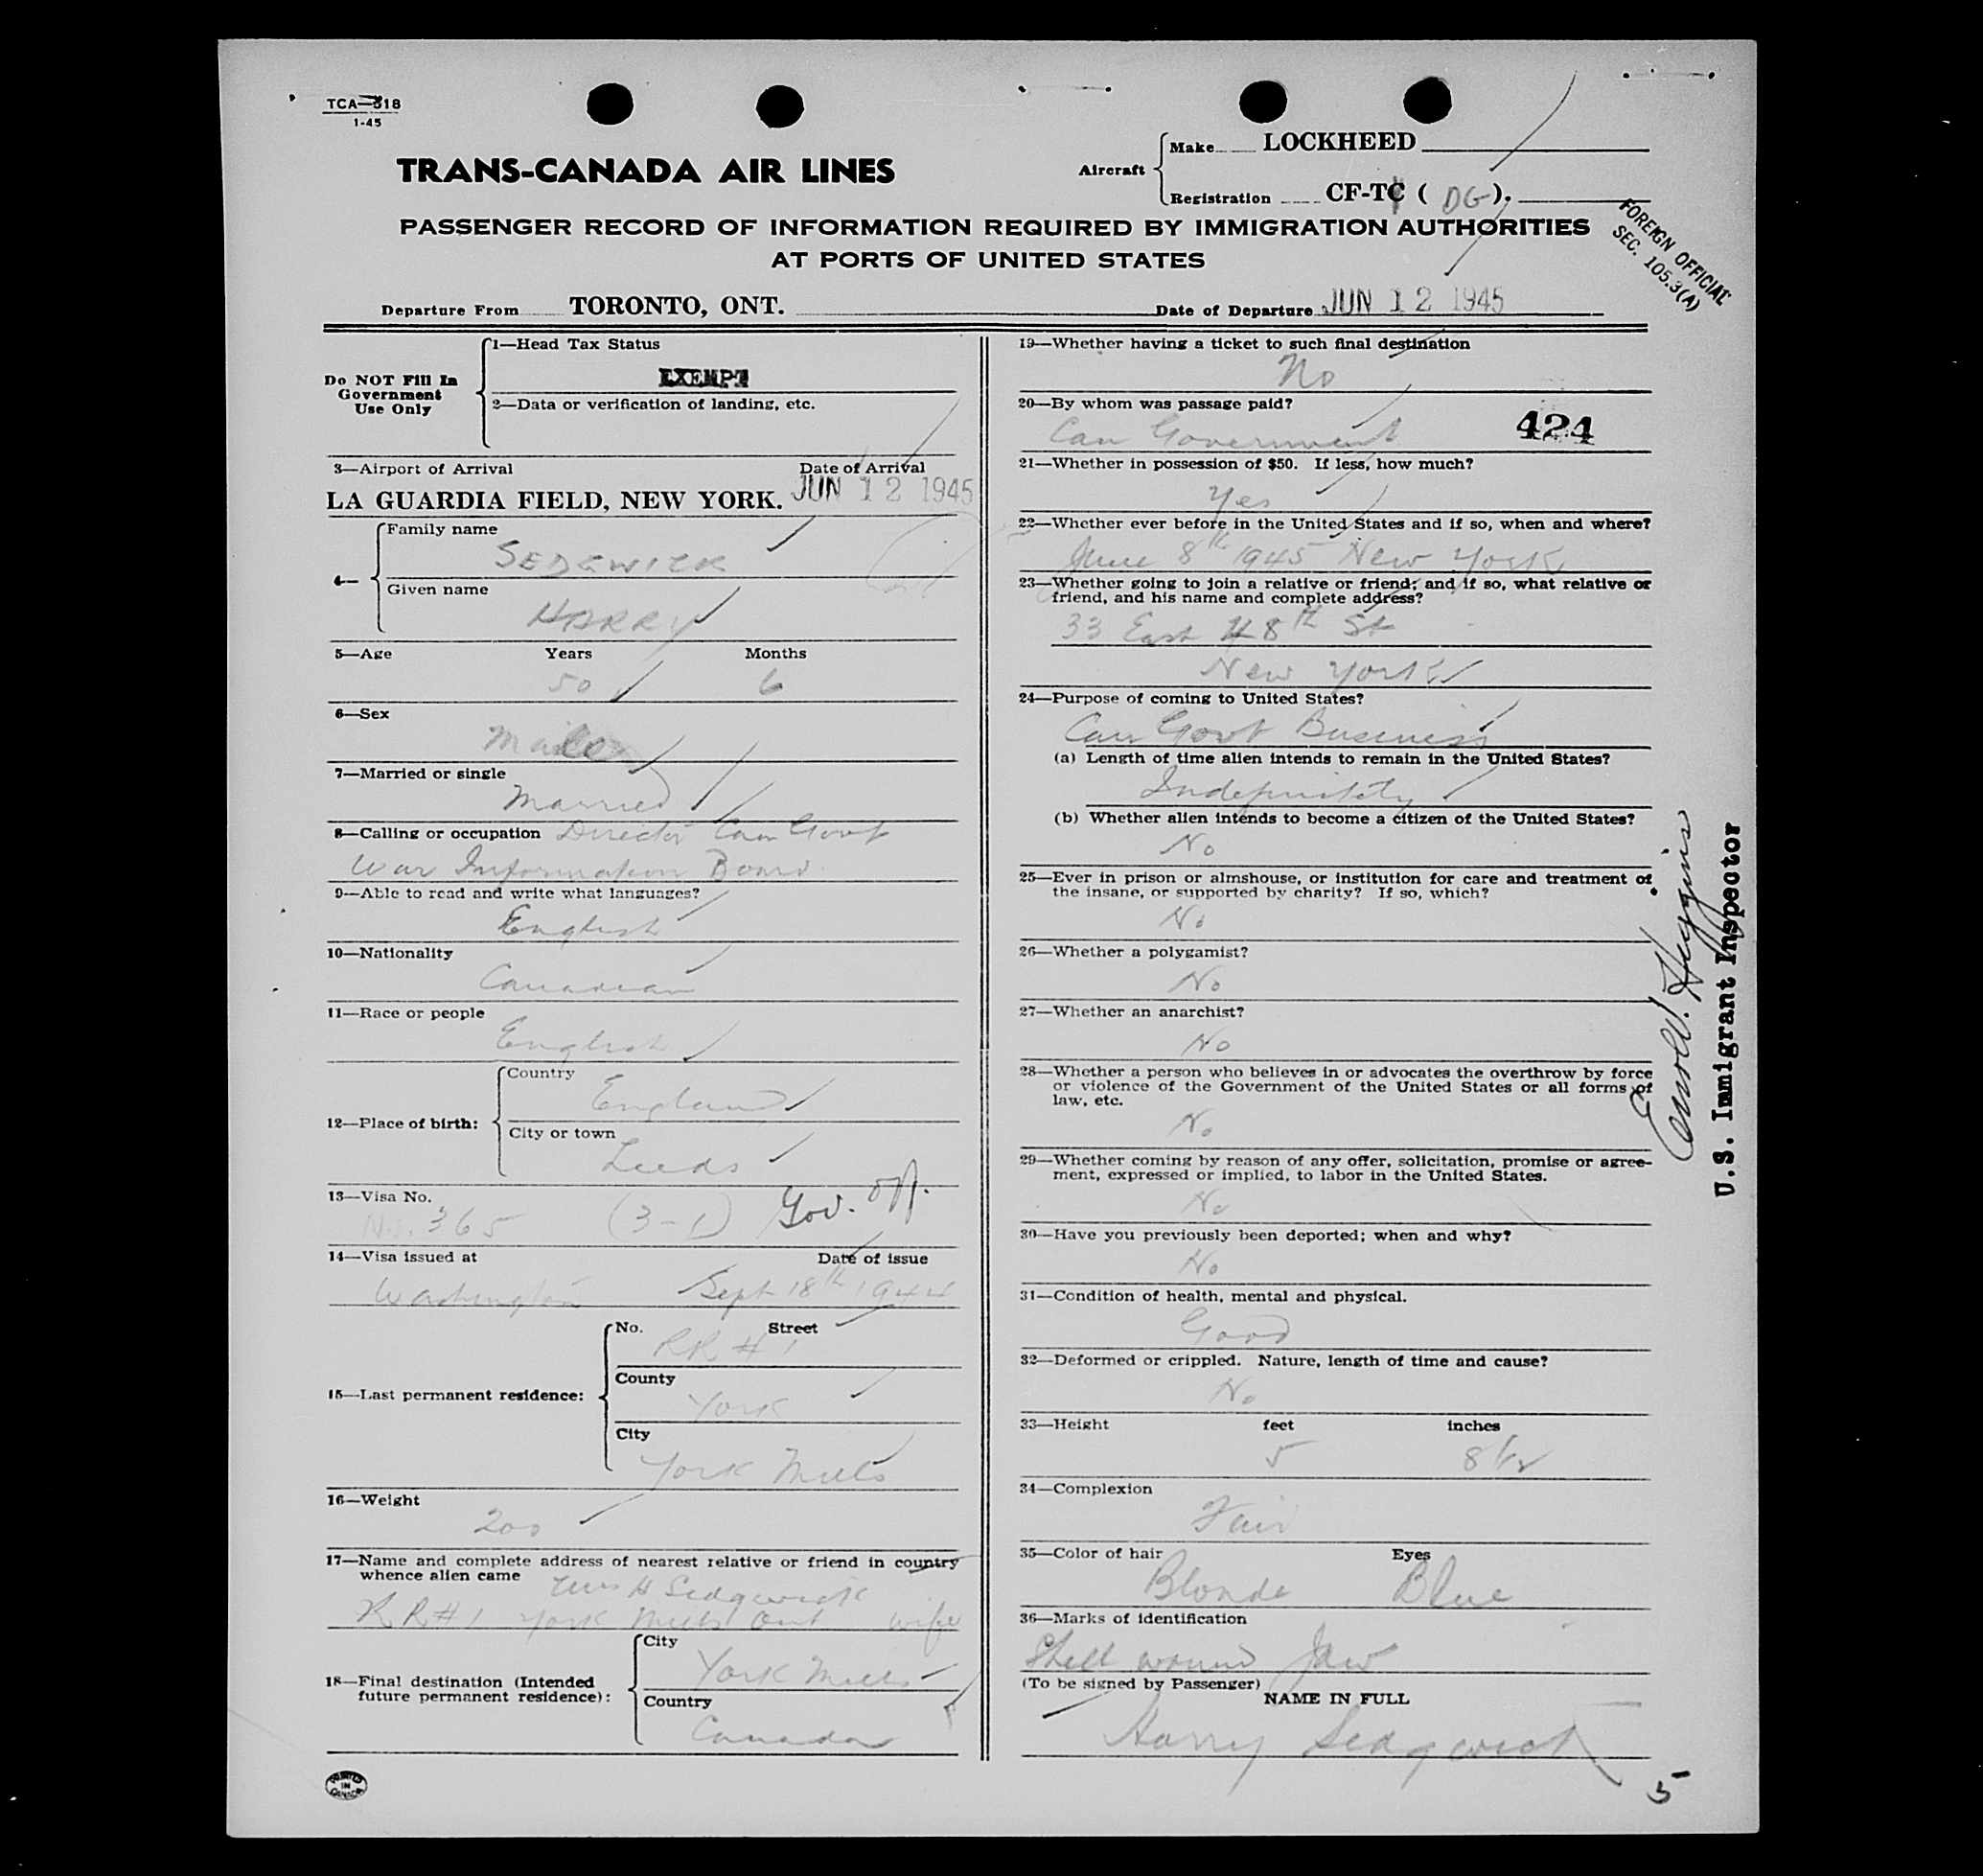 TCA—318
1-45
TRANS-CANADA AIR LINES
Aircraft
Make LOCKHEED
Registration CF-TC ( DG ).
PASSENGER RECORD OF INFORMATION REQUIRED BY IMMIGRATION AUTHORITIES
AT PORTS OF UNITED STATES
FOREIGN OFFICIAL
SEC. 105.3(A)
Departure From TORONTO, ONT. Date of Departure JUN 12 1945
Do NOT Fill In
Government
Use Only
1—Head Tax Status
EXEMPT
2—Data or verification of landing, etc.
3—Airport of Arrival Date of Arrival
LA GUARDIA FIELD, NEW YORK. JUN 12 1945
4—
Family name
SEDGWICK
Given name
HARRY
5—Age Years Months
50 6
6—Sex
Male
7—Married or single
Married
8—Calling or occupation Director Can Govt
War Information Board
9—Able to read and write what languages?
English
10—Nationality
Canadian
11—Race or people
English
12—Place of birth:
Country
England
City or town
Leeds
13—Visa No.
No. 365 (3-1) Gov. Off.
14—Visa issued at Date of issue
Washington Sept 18th 1944
15—Last permanent residence:
No. Street
RR # 1
County
York
City
York Mills
16—Weight
200
17—Name and complete address of nearest relative or friend in country
whence alien came Mrs H Sedgwick
RR#1 York Mills Ont wife
18—Final destination (Intended
future permanent residence):
City
York Mills
Country
Canada
PRINTED
IN
CANADA
19—Whether having a ticket to such final destination
No
20—By whom was passage paid?
Can Government
424
21—Whether in possession of $50. If less, how much?
Yes
22—Whether ever before in the United States and if so, when and where?
June 8th 1945 New York
23—Whether going to join a relative or friend; and if so, what relative or
friend, and his name and complete address?
33 East 48th St
New York
24—Purpose of coming to United States?
Can Govt Business
(a) Length of time alien intends to remain in the United States?
Indefinitely
(b) Whether alien intends to become a citizen of the United States?
No
25—Ever in prison or almshouse, or institution for care and treatment of
the insane, or supported by charity? If so, which?
No
26—Whether a polygamist?
No
27—Whether an anarchist?
No
28—Whether a person who believes in or advocates the overthrow by force
or violence of the Government of the United States or all forms of
law, etc.
No
29—Whether coming by reason of any offer, solicitation, promise or agree-
ment, expressed or implied, to labor in the United States.
No
30—Have you previously been deported; when and why?
No
31—Condition of health, mental and physical.
Good
32—Deformed or crippled. Nature, length of time and cause?
No
33—Height feet inches
5 8 1/2
34—Complexion
Fair
35—Color of hair Eyes
Blonde Blue
36—Marks of identification
Shell wound Jaw
(To be signed by Passenger)
NAME IN FULL
Harry Sedgwick
5
Higgins
U.S. Immigrant Inspector